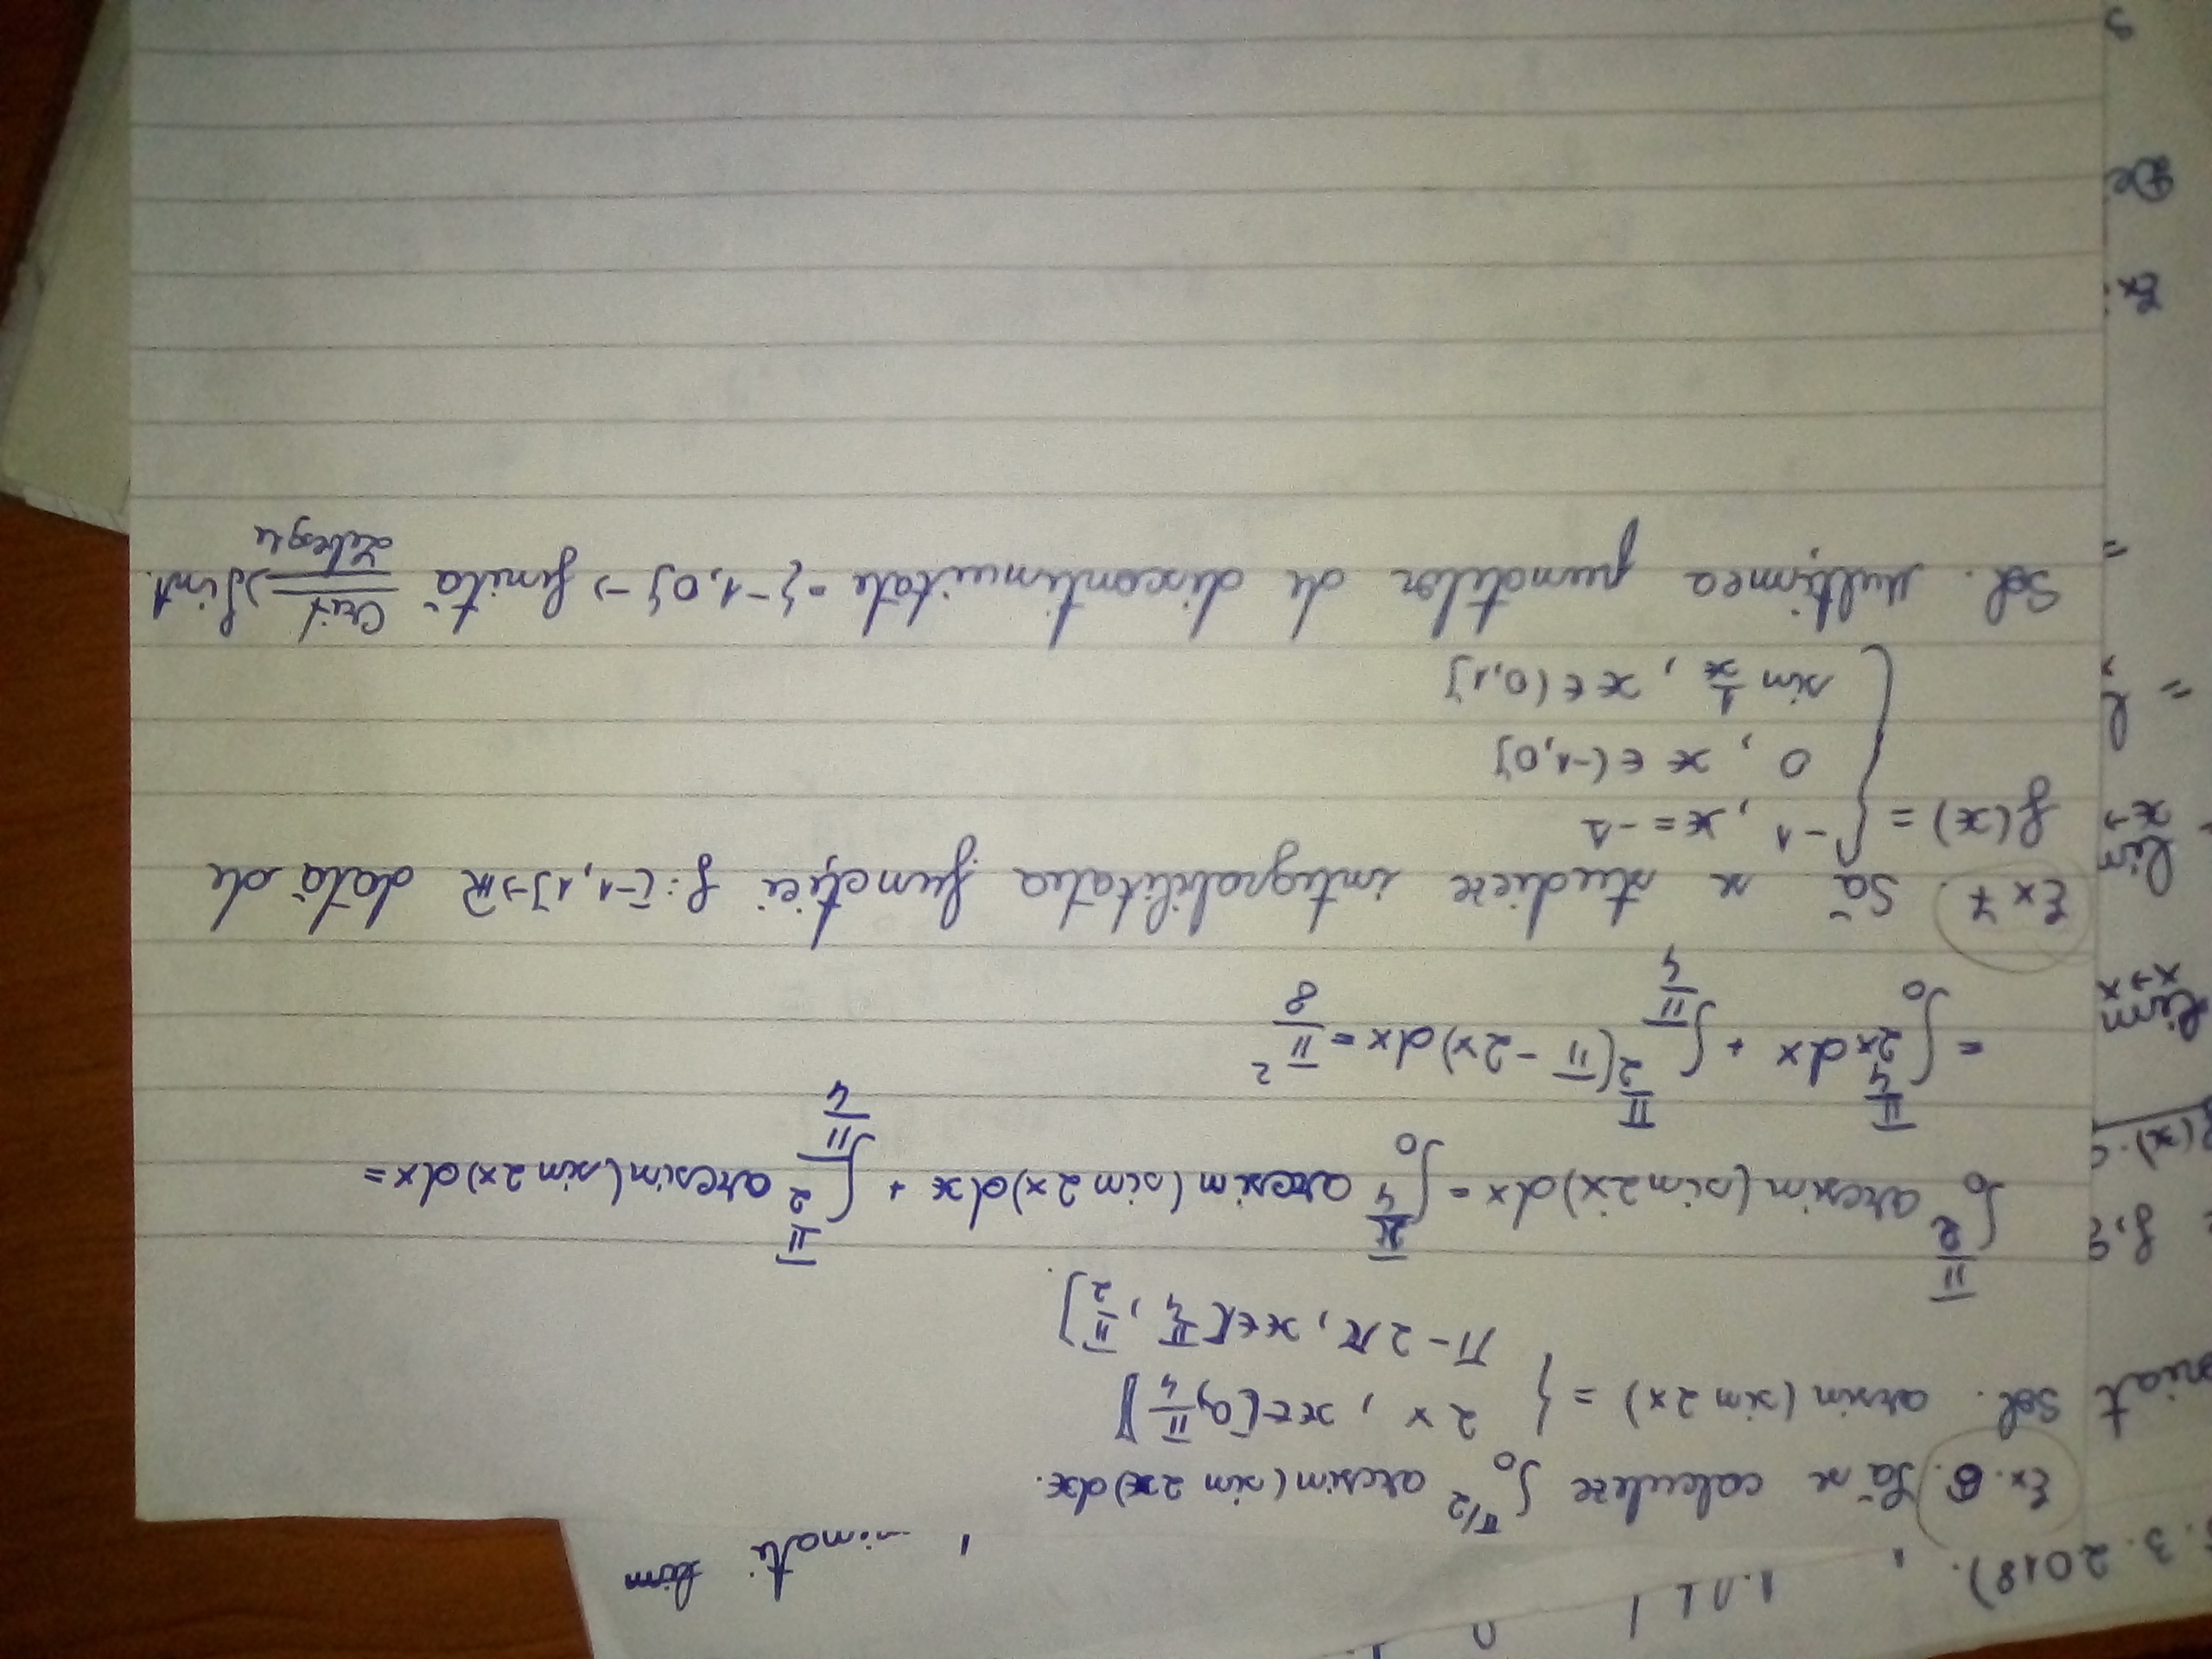 . 3. 2018).
nimali lim
Ex. 6. Să se calculeze ∫₀^{π/2} arcsin(sin 2x)dx.
Sol. arsin(sin 2x) = { 2x, x∈[0, π/4]
π-2x, x∈[π/4, π/2].
∫₀^{π/2} arcsin(sin2x)dx = ∫₀^{π/4} arcsin(sin 2x)dx + ∫_{π/4}^{π/2} arcsin(sin 2x)dx =
= ∫₀^{π/4} 2x dx + ∫_{π/4}^{π/2} (π - 2x)dx = π²/8
Ex 7. Să se studieze integrabilitatea funcției f: [-1,1]→ℝ dată de
f(x) = { -1, x = -1
0, x ∈ (-1,0]
sin 1/x, x ∈ (0,1]
Sol. Mulțimea punctelor de discontinuitate = {-1,0} → finită =Crit Lebesgue=> f int.
niat
f, g
f(x)·
lim x→x
lim x→
= f
=
Ex:
De